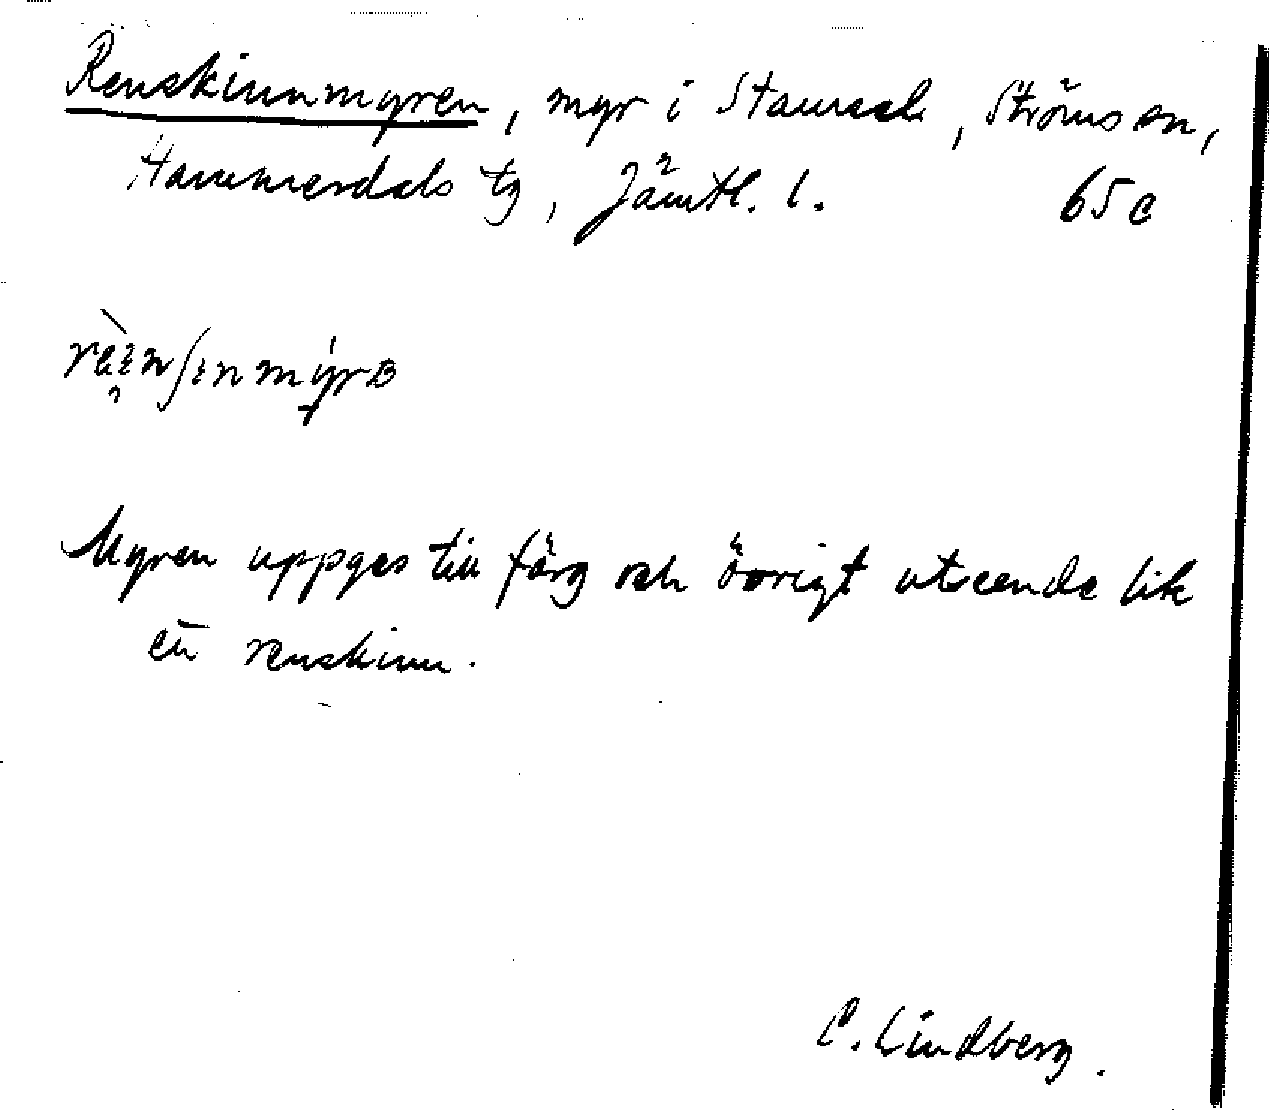 Renskinnmyren, myr i Stamsele, Ströms sn,
Hammerdals tg, Jämtl. l. 65 c
Myren uppges till färg och övrigt utseende lik
ett renskinn.
C. Lindberg.